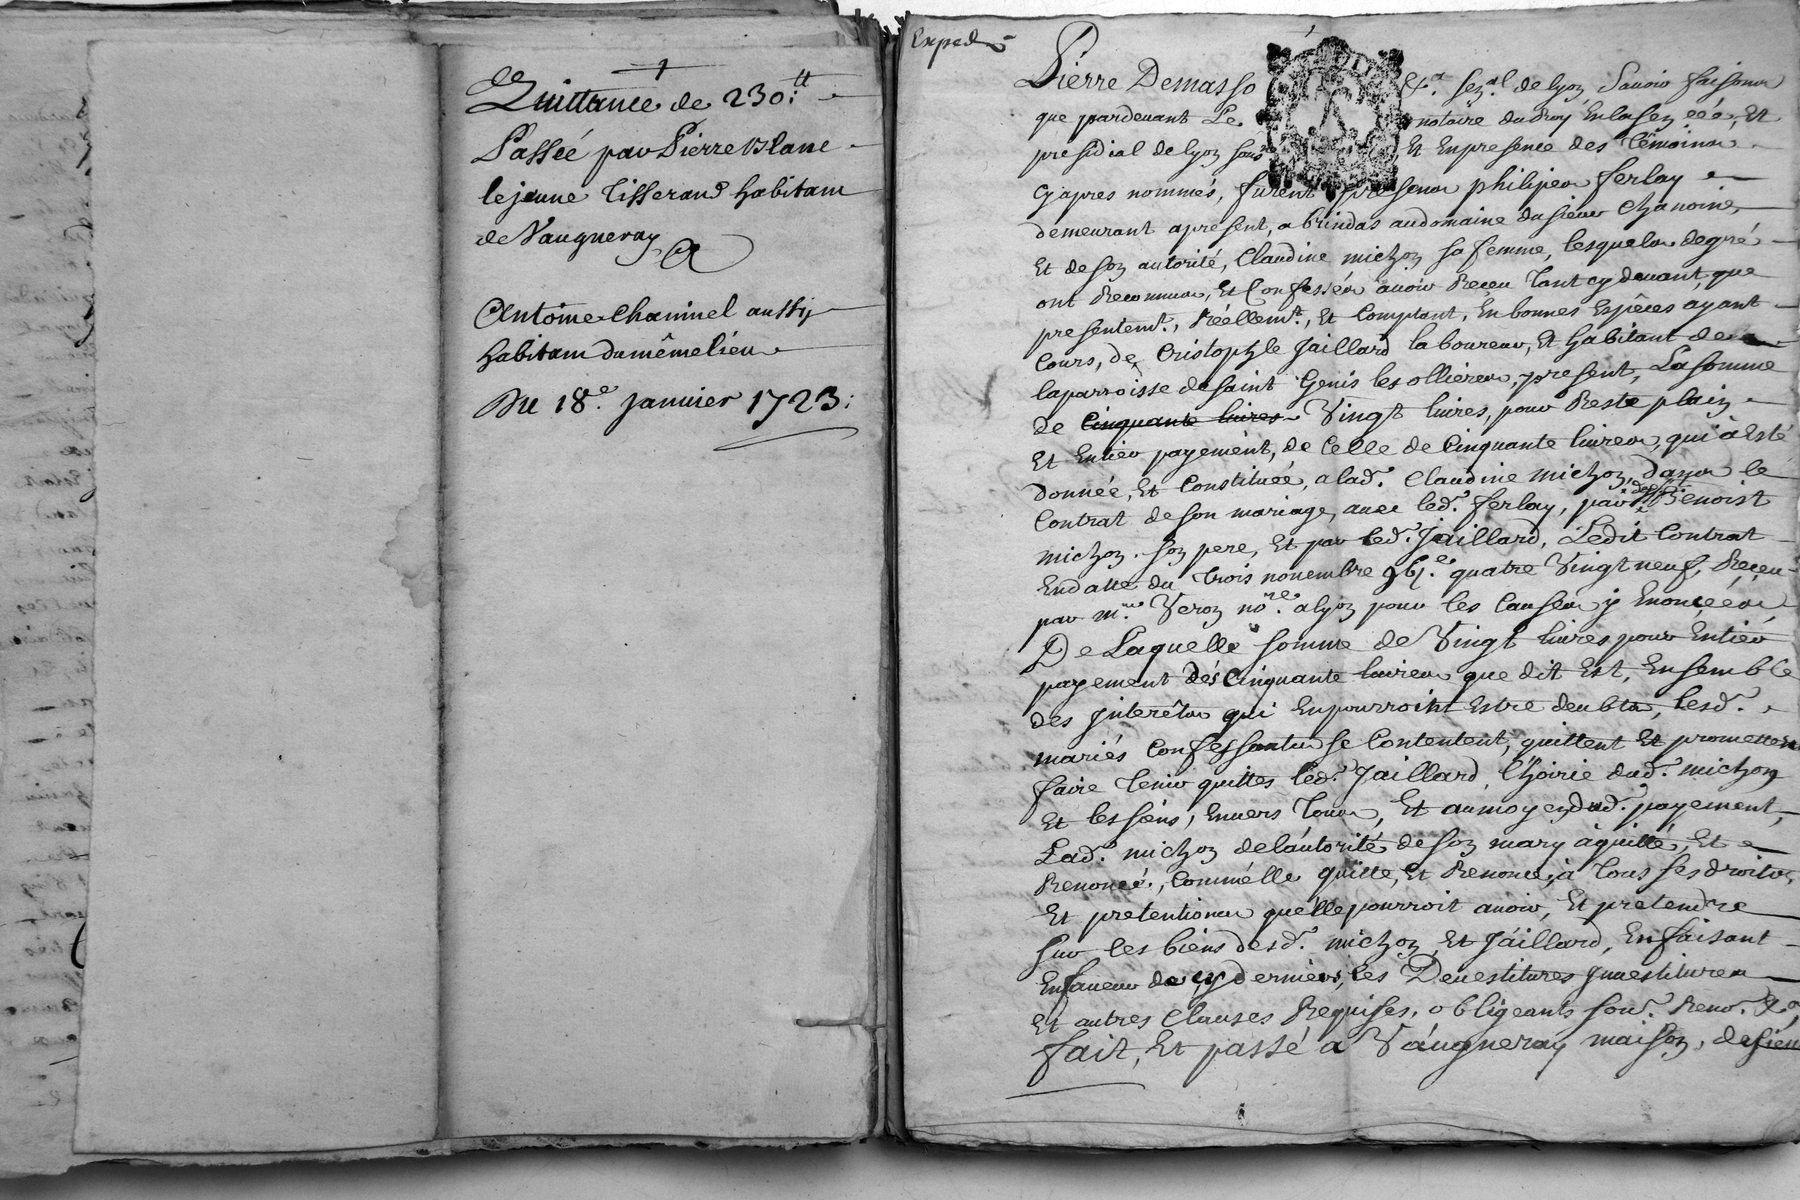 Quittance de 230:tt
Passée par Pierre Blanc
le jeune Tisserand habitant
de Vaugneray
A
Antoine Chaninel aussy
habitant du même lieu
Du 18e. Janvier 1723:
Exped
Pierre Demasso &a. senal. de lyon Sauoir faisons
que pardeuant Le notaire du Roy En la sen éeé, Et
presidial de lyon sous Et En presence des Témoins
Cy apres nommés, furent presens philipes ferlay
demeurant apresent, a brindas au domaine du sieur Chanoine,
Et de son autorité, Claudine michon sa femme, lesquels de gré
ont Reconnus, Et Confessés auoir Receu Tant cy deuant, que
presentemt., Réellemt., Et Comptant, En bonnes Espêces ayant
Cours, de, Cristophle Jaillard laboureur, Et habitant de
la parroisse de saint Genis les ollieres, present, La somme
de Cinquante liures Vingt liures, pour Reste plain
Et Entier payement, de Celle de Cinquante liures, qui a Esté
donnée, Et Constituée, a lad. Claudine michon, dans le
Contrat de son mariage, auec led. ferlay, par Benoist
michon son pere, Et par led. Jaillard, Ledit Contrat
En datte du Trois nouembre quatre Vingt neuf, Receu
par me. Veron nore. a lyon pour les Causes y Enoncées
De Laquelle somme de Vingt liures pour Entier
payement dés Cinquante liures que dit Est, Ensemble
des Jnteréts qui En pourroint Estre deubts, lesd.
mariés Confessants se Contentent, quittent Et promettent
faire Tenir quittes led. Jaillard l'hoirie dud. michon
Et les siens, Enuers Tous, Et au moyen dud. payement,
Lad. michon de láutorité de son mary à quitté, Et
Renoncé, Comme élle quitte, Et Renonce, à Tous ses droits,
Et pretentions qu'élle pourroit auoir, Et pretendre
sur les biens desd. michon Et Jaillard, En faisant
En faueur de cy derniers, les Deuestitures Jnuestitures
Et autres Clauses Requises, obligeants sous. Reno. &a.
fait, Et passé a Vaugneray maison, de sieur